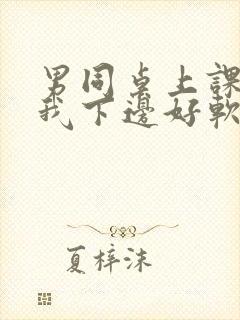 男同桌上課
我下邊好軟
夏梓沫